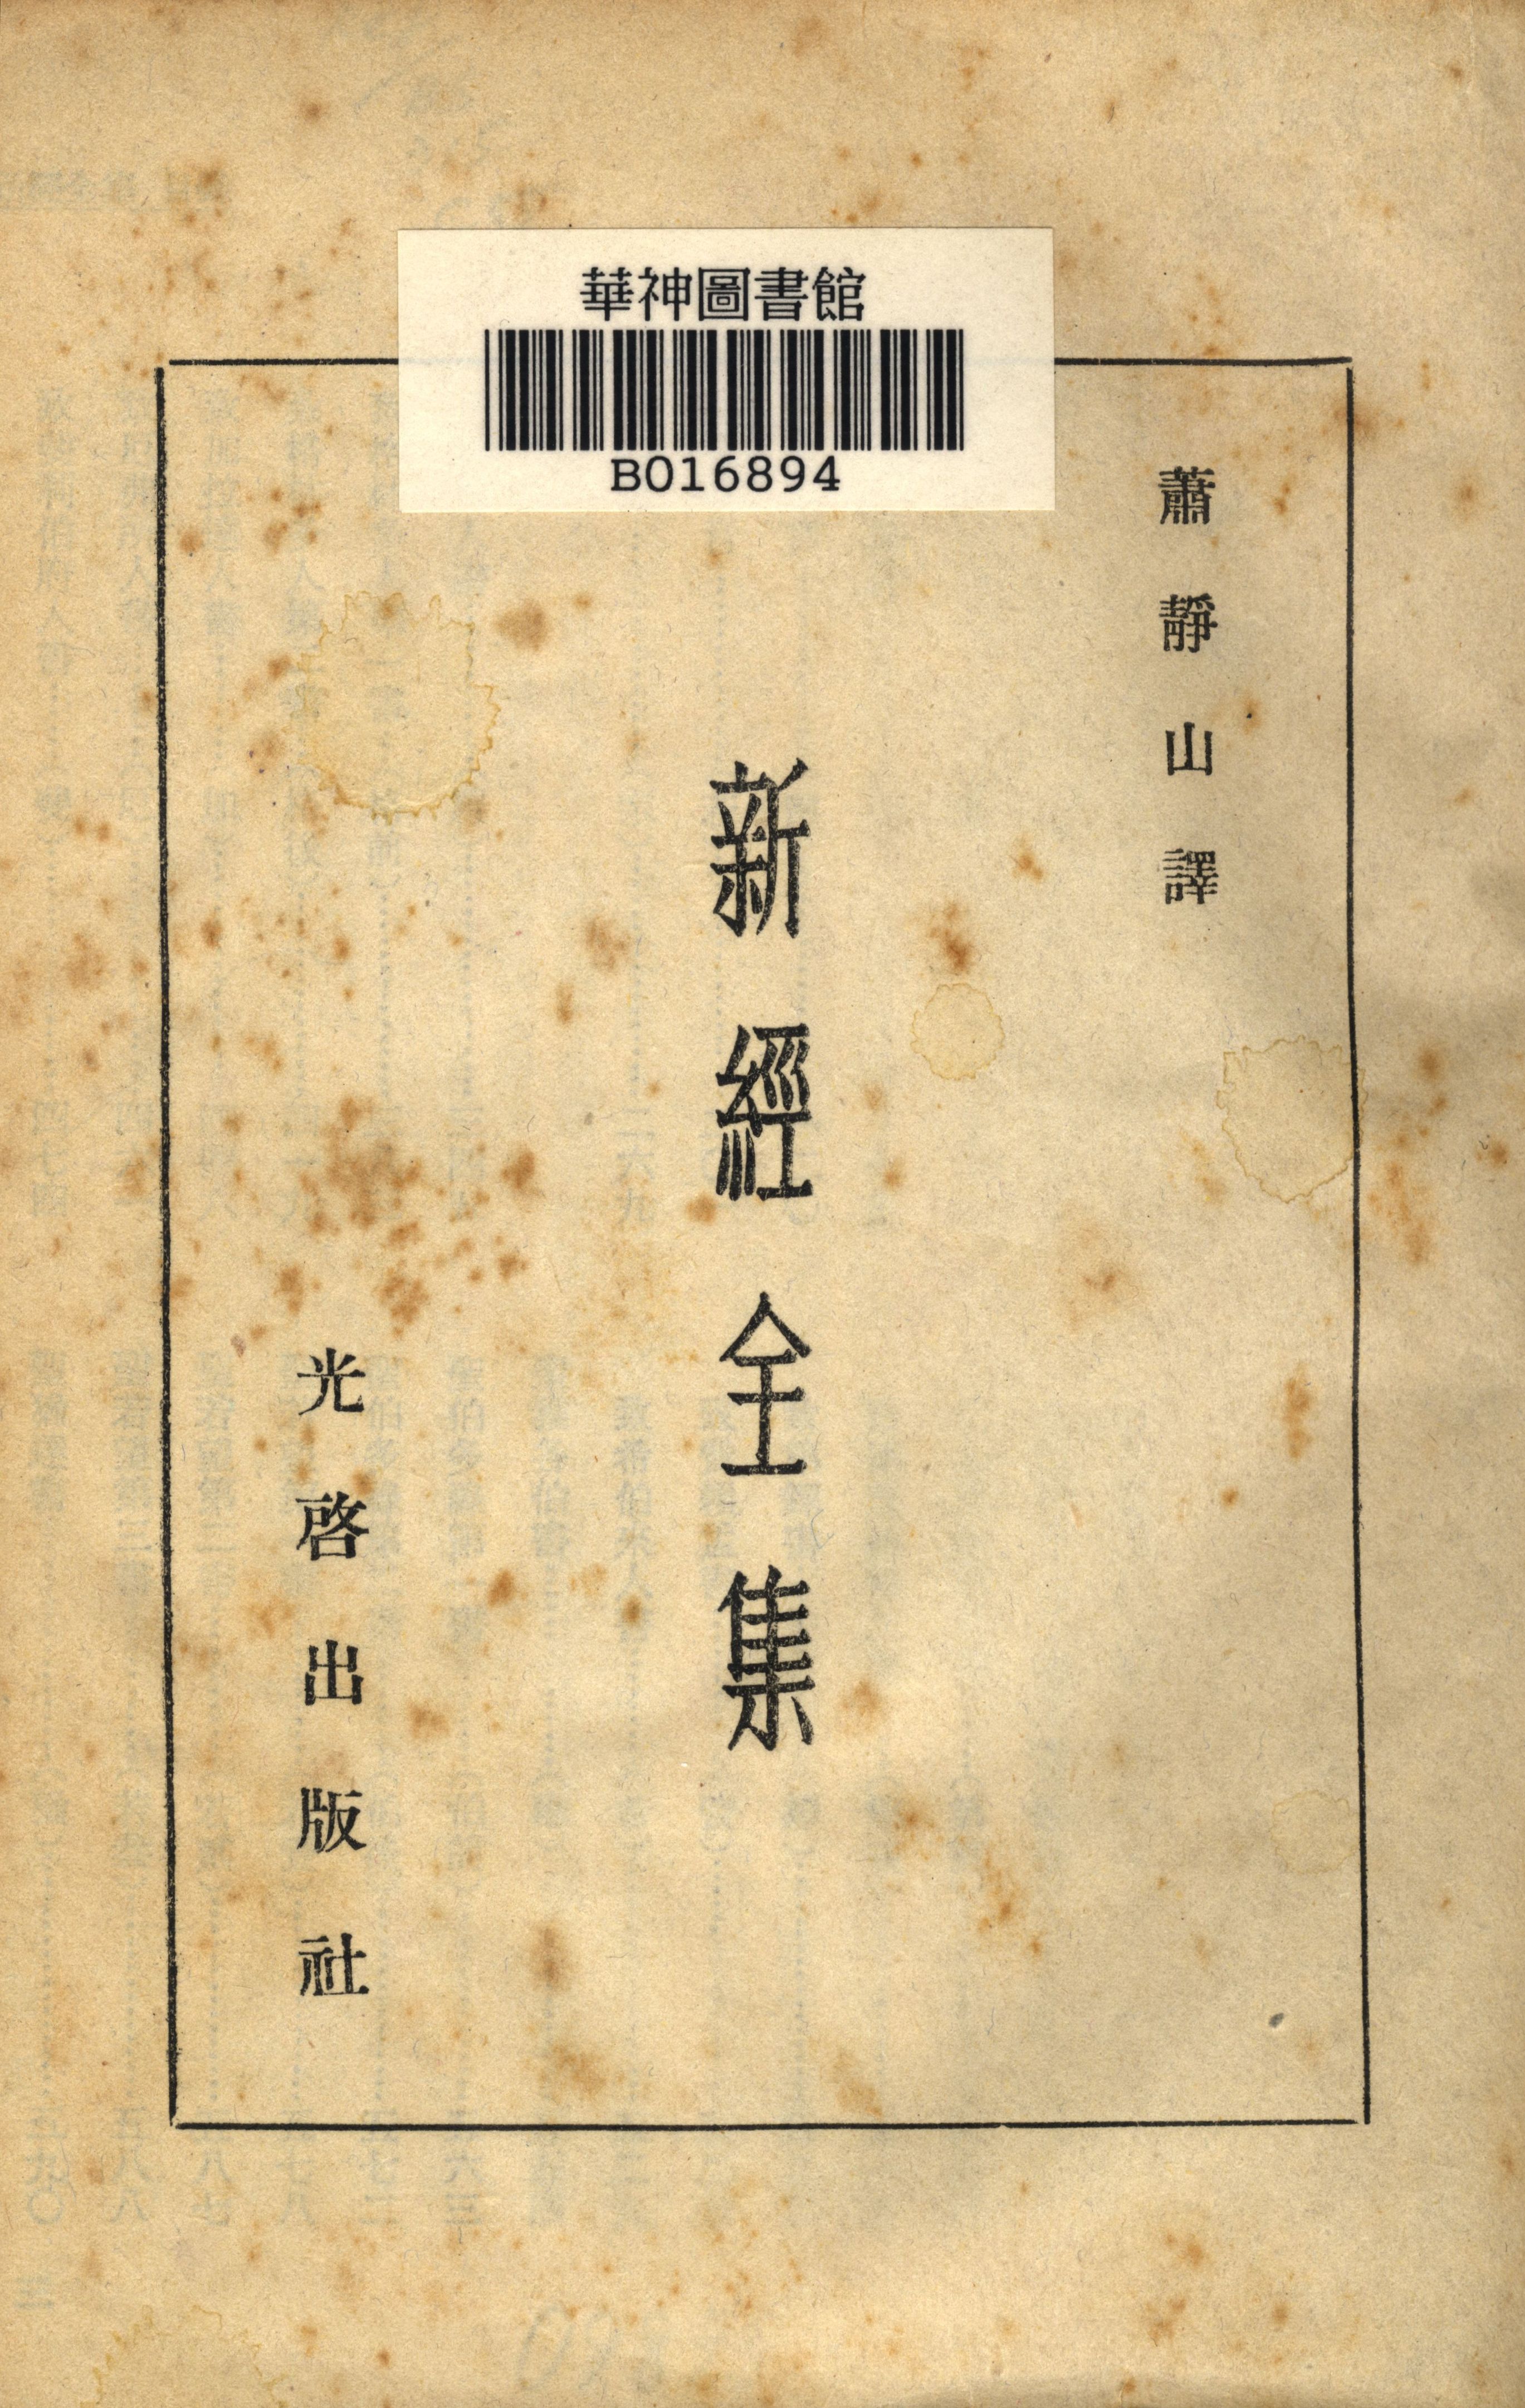 華神圖書館
B016894
蕭靜山譯
新經全集
光啓出版社